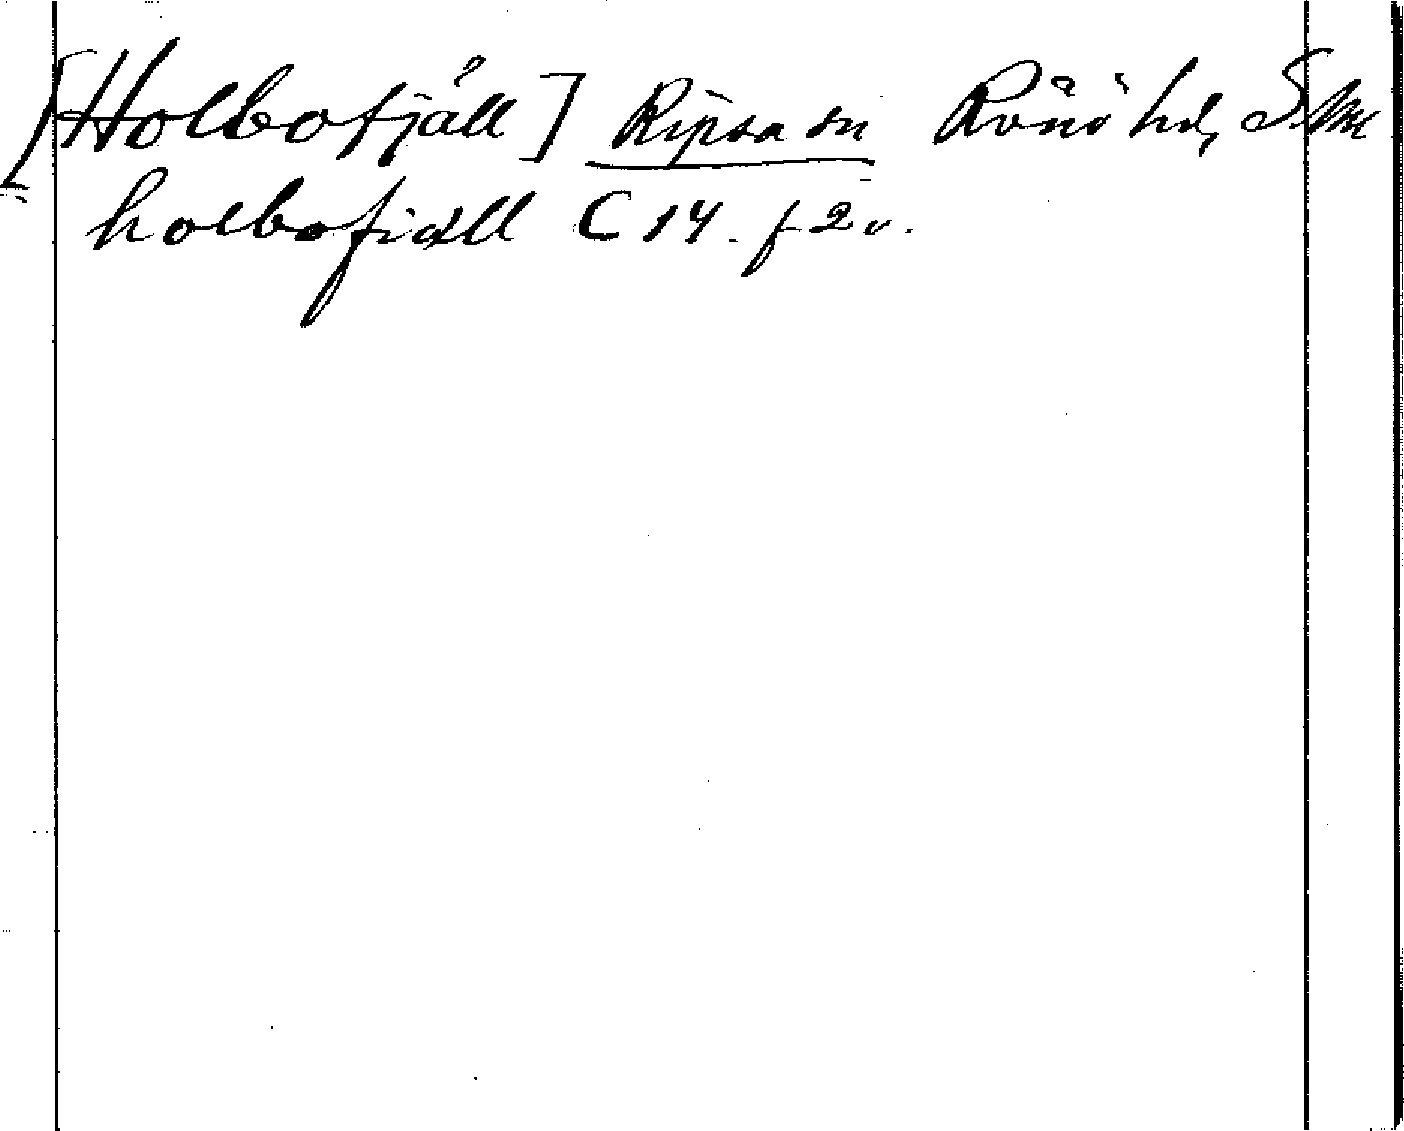 [Holbofjäll] Ripsa sn Rönö hd, Söm
holbofiæll C 14. f 2 v.